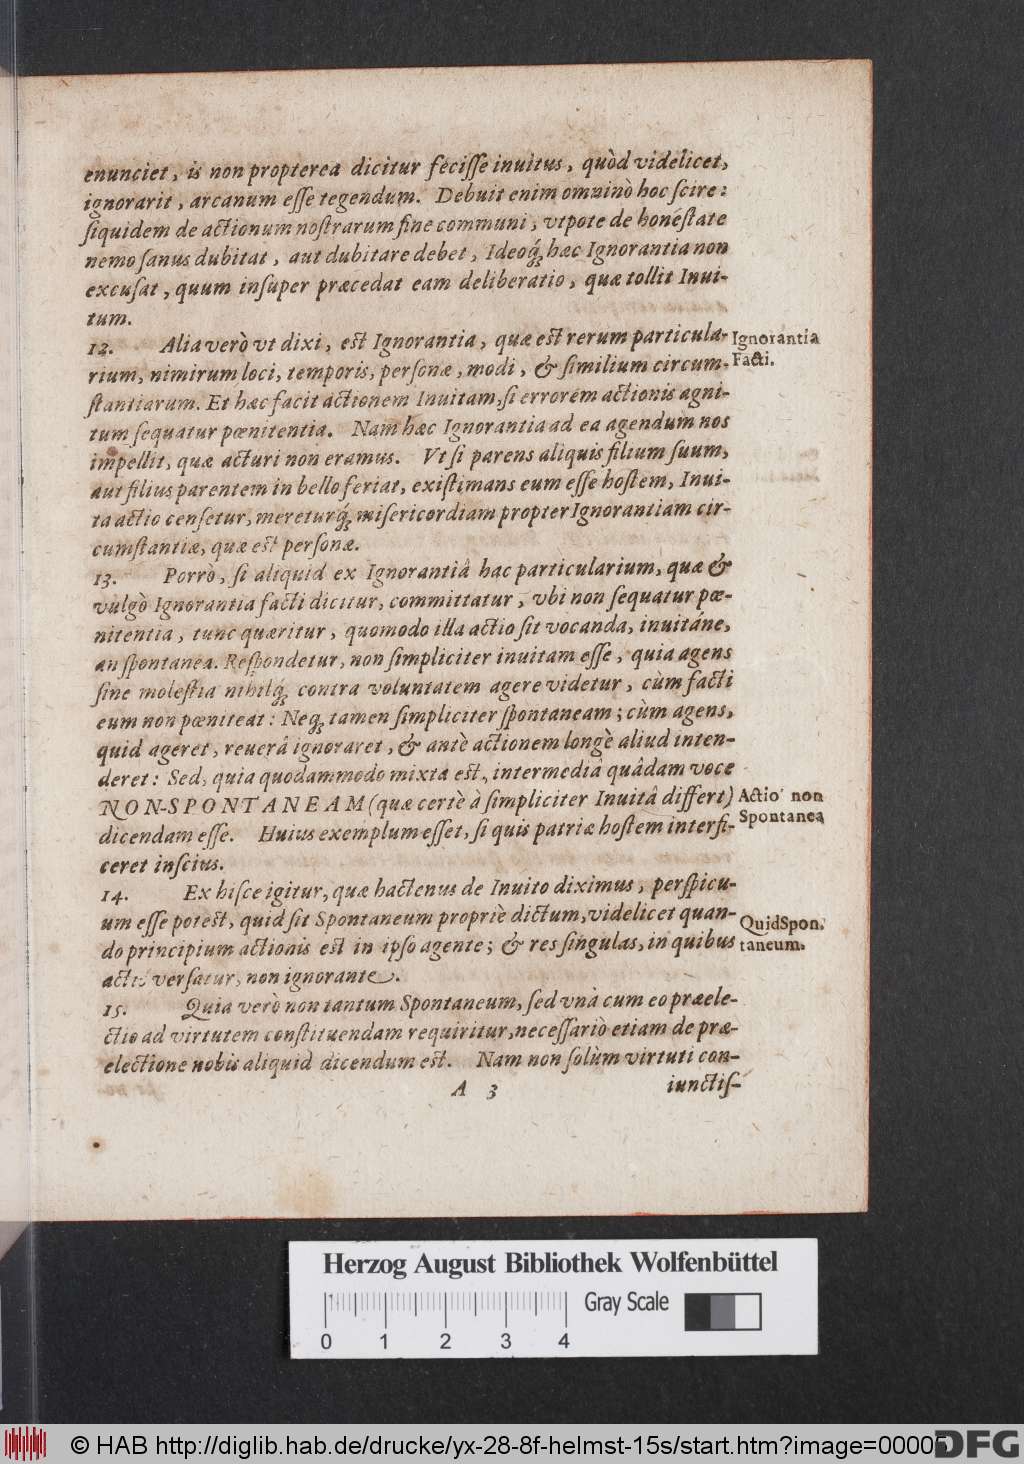 enunciet, is non propterea dicitur fecisse inuitus, quòd videlicet,
ignorarit, arcanum esse tegendum. Debuit enim omnino hoc scire:
siquidem de actionum nostrarum fine communi, vtpote de honestate
nemo sanus dubitat, aut dubitare debet, Ideoq́ hæc Ignorantia non
excusat, quum insuper præcedat eam deliberatio, quæ tollit Inui-
tum.
12. Alia verò vt dixi, est Ignorantia, quæ est rerum particula-
rium, nimirum loci, temporis, personæ, modi, & similium circum-
stantiarum. Et hæc facit actionem Inuitam, si errorem actionis agni-
tum sequatur pœnitentia. Nam hæc Ignorantia ad ea agendum nos
impellit, quæ acturi non eramus. Vt si parens aliquis filium suum,
aut filius parentem in bello feriat, existimans eum esse hostem, Inui-
ta actio censetur, mereturq́ misericordiam propter Ignorantiam cir-
cumstantiæ, quæ est personæ.
Ignorantia
Facti.
13. Porrò, si aliquid ex Ignorantiâ hac particularium, quæ &
vulgò Ignorantia facti dicitur, committatur, vbi non sequatur pœ-
nitentia, tunc quæritur, quomodo illa actio sit vocanda, inuitáne,
an spontanea. Respondetur, non simpliciter inuitam esse, quia agens
sine molestia nihilq́ contra voluntatem agere videtur, cùm facti
eum non pœniteat: Neq; tamen simpliciter spontaneam; cùm agens,
quid ageret, reuerâ ignoraret, & antè actionem longè aliud inten-
deret: Sed, quia quodammodo mixta est, intermediâ quâdam voce
NON-SPONTANEAM (quæ certè à simpliciter Inuitâ differt)
dicendam esse. Huius exemplum esset, si quis patriæ hostem interfi-
ceret inscius.
Actio non
Spontanea
14. Ex hisce igitur, quæ hactenus de Inuito diximus, perspicu-
um esse potest, quid sit Spontaneum propriè dictum, videlicet quan-
do principium actionis est in ipso agente; & res singulas, in quibus
actio versatur, non ignorante.
Quid Spon-
taneum.
15. Quia verò non tantum Spontaneum, sed vnà cum eo praele-
ctio ad virtutem constituendam requiritur, necessariò etiam de præ-
electione nobis aliquid dicendum est. Nam non solùm virtuti con-
A 3 iunctis-
Herzog August Bibliothek Wolfenbüttel
Gray Scale
0 1 2 3 4
© HAB http://diglib.hab.de/drucke/yx-28-8f-helmst-15s/start.htm?image=00005
DFG